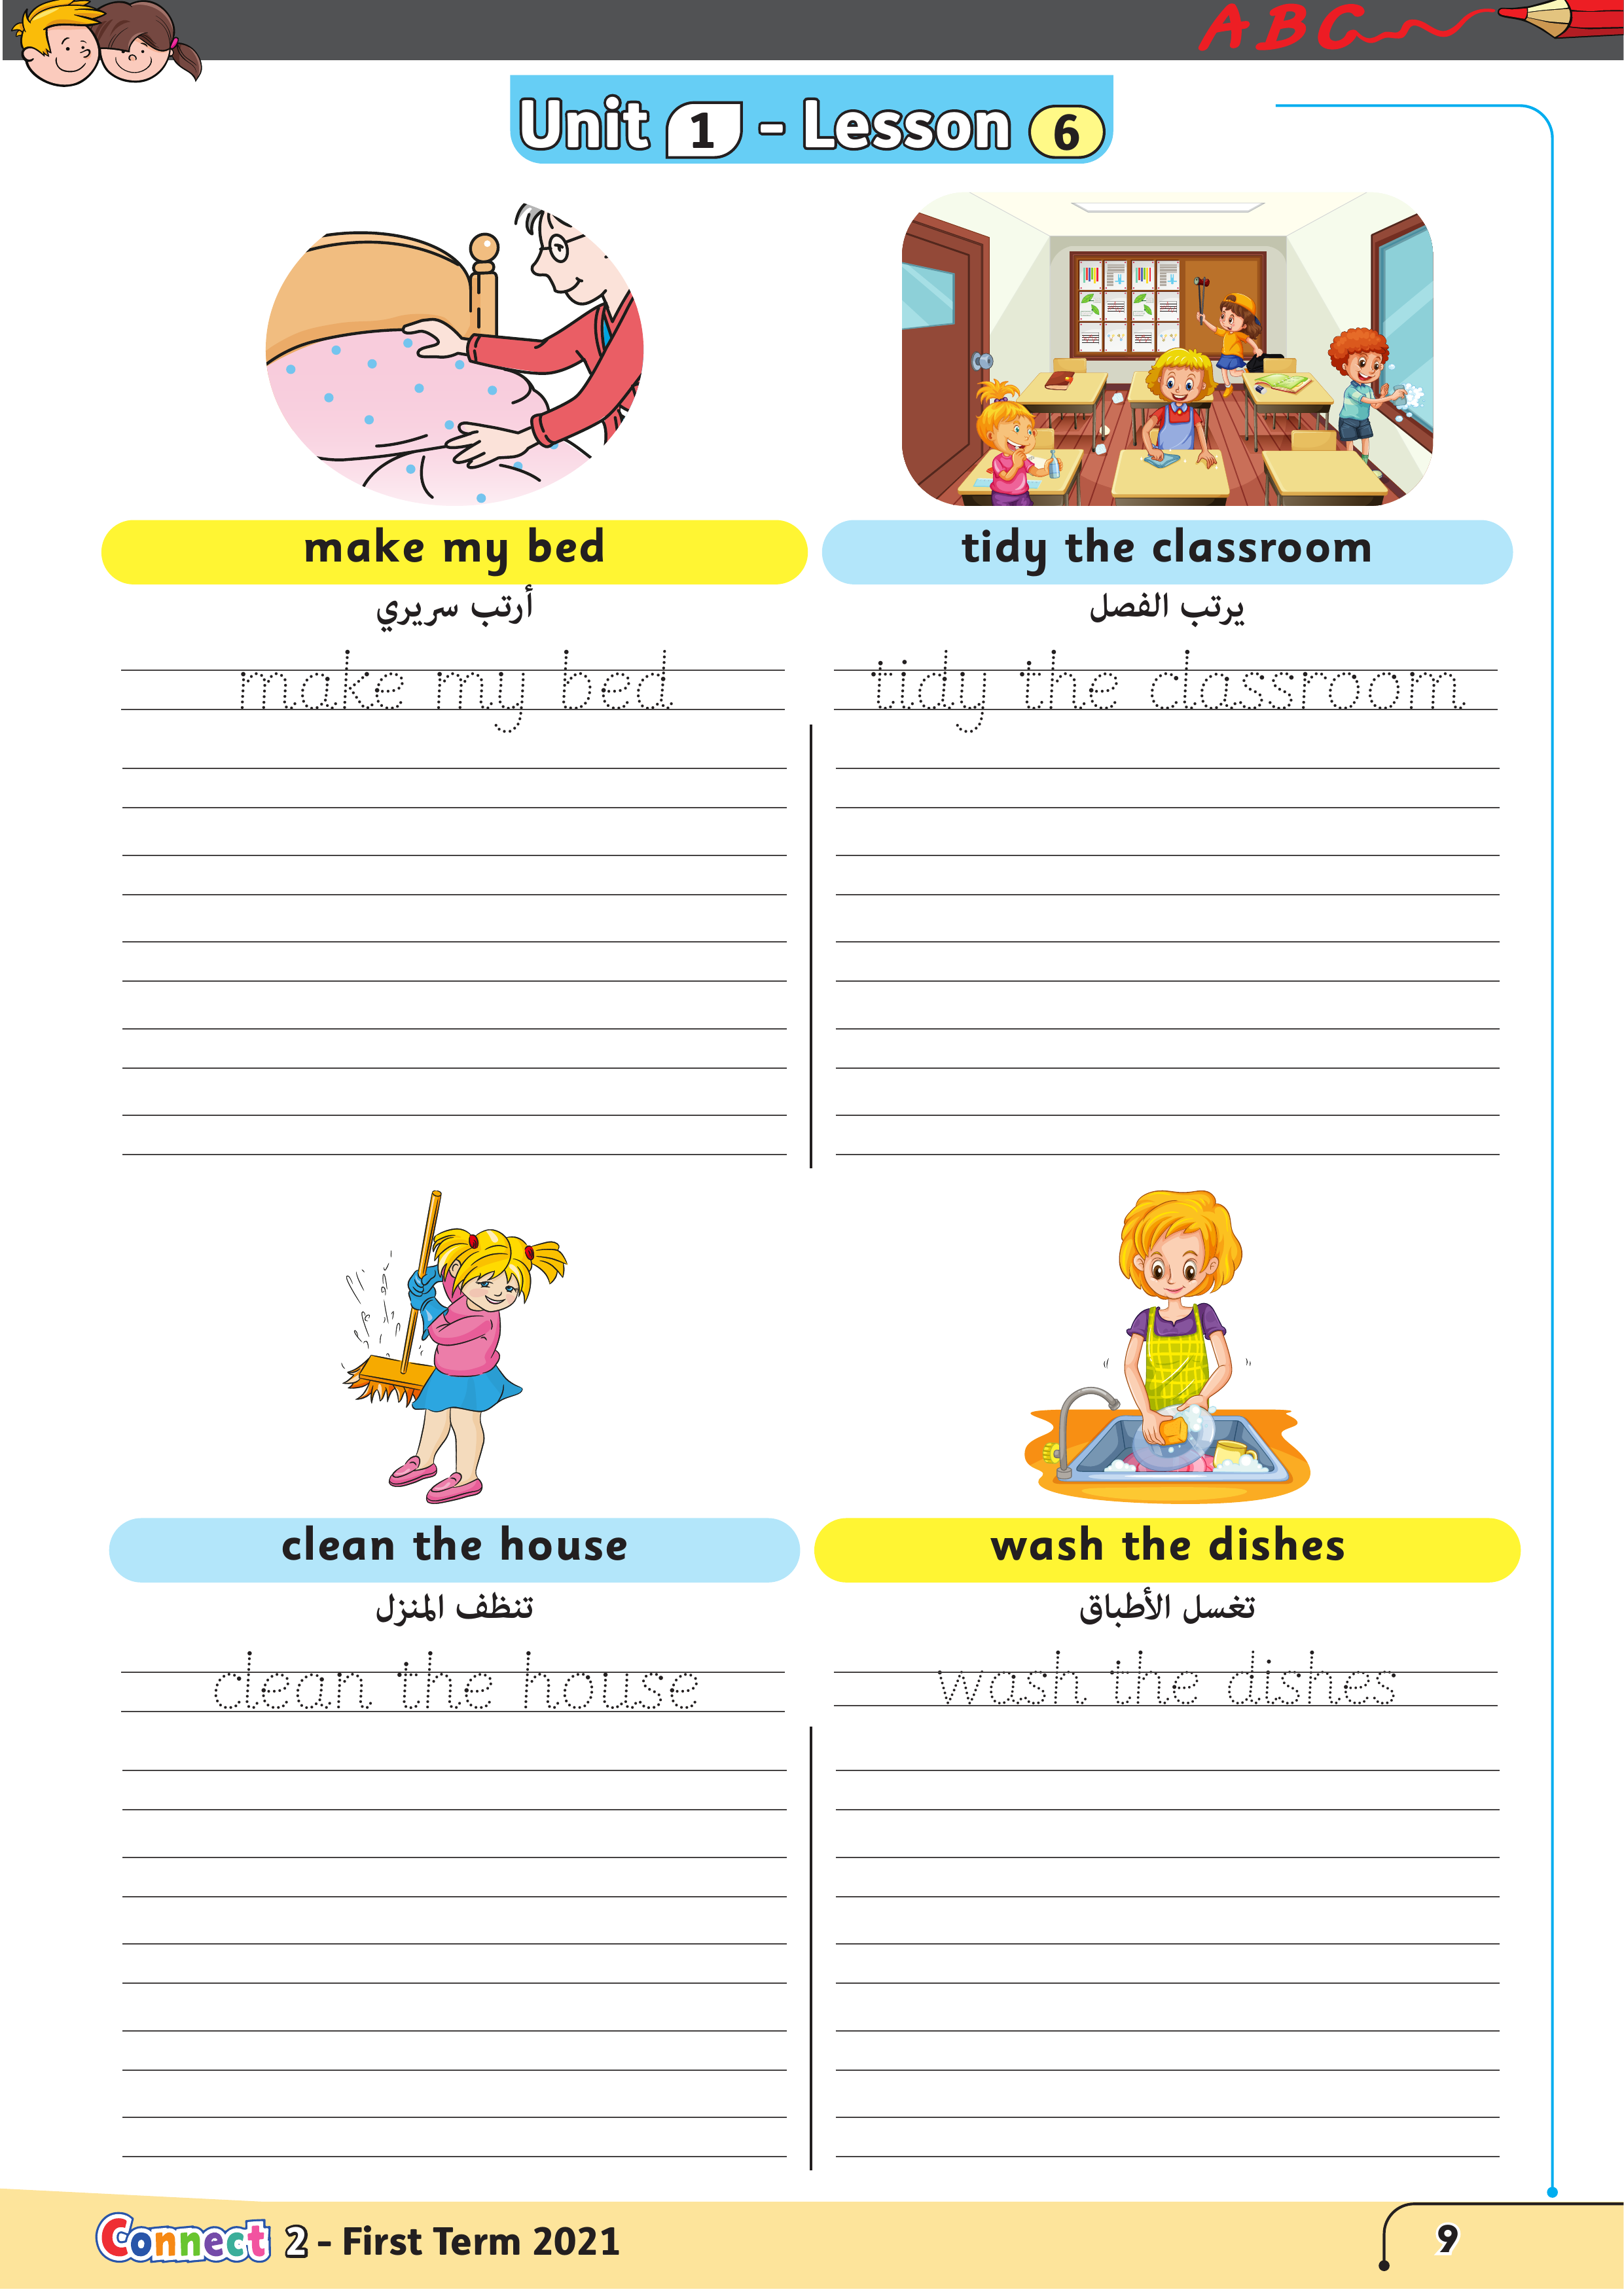 ABC
Unit 1 - Lesson 6
make my bed
أرتب سريري
make my bed
tidy the classroom
يرتب الفصل
tidy the classroom
clean the house
تنظف المنزل
clean the house
wash the dishes
تغسل الأطباق
wash the dishes
Connect 2 - First Term 2021
9